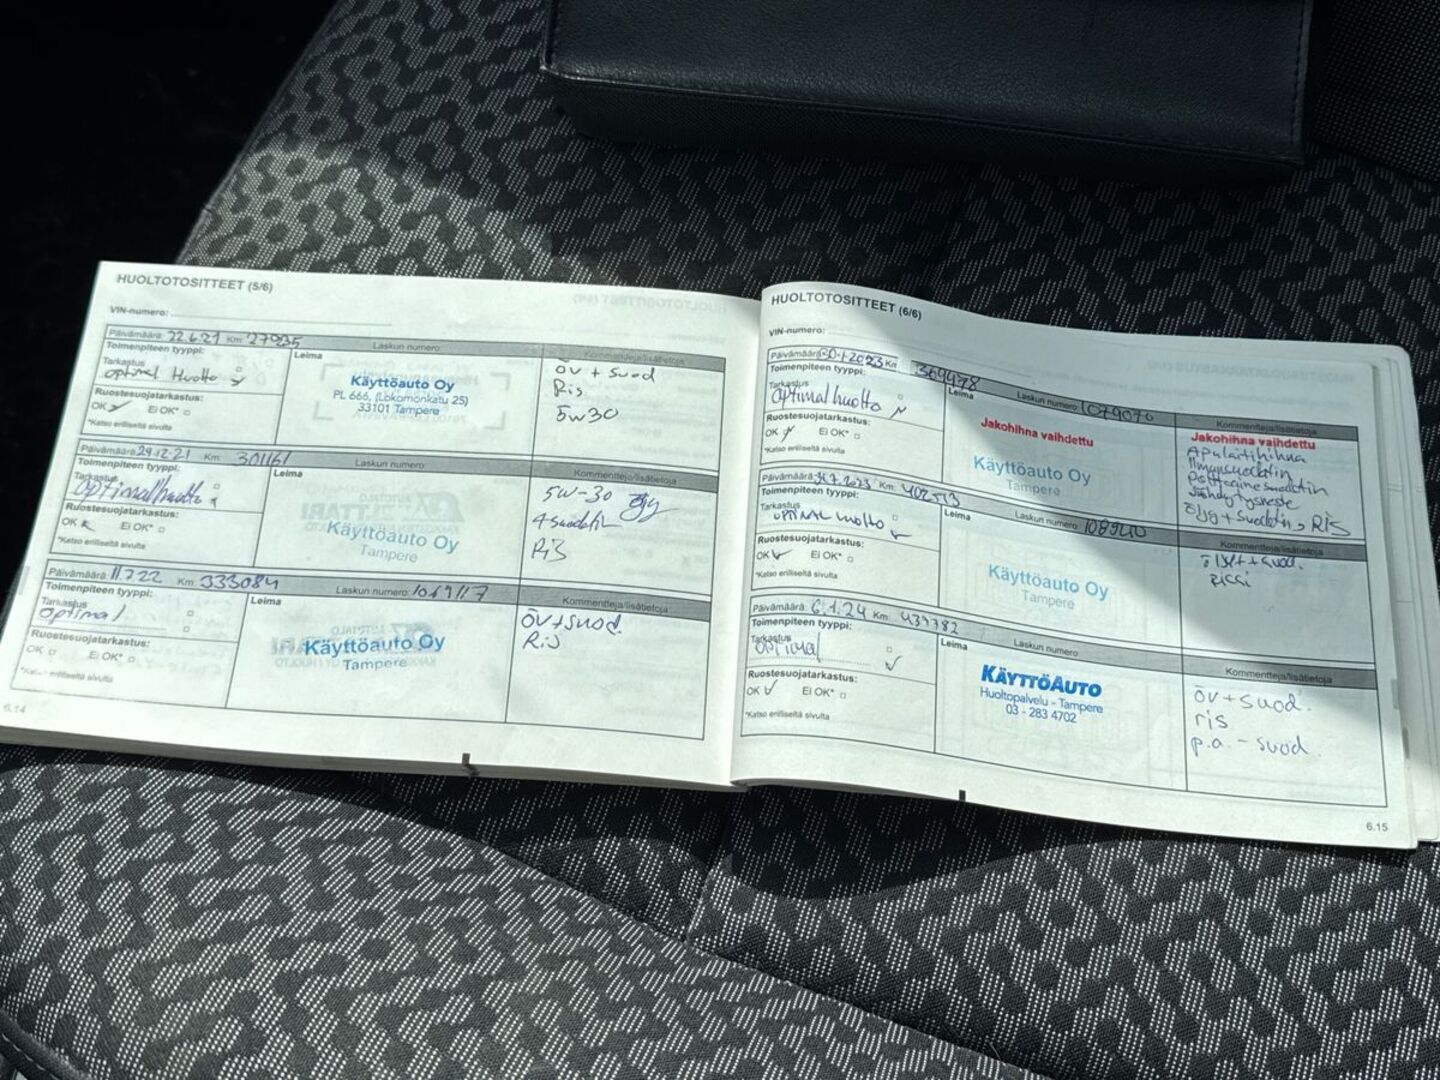 HUOLTOTOSITTEET (5/6)
VIN-numero:
Päivämäärä: 22.6.21 Km: Laskun numero:
Toimenpiteen tyyppi: Leima Kommentteja/lisätietoja
Tarkastus
optimal Huolto
Ruostesuojatarkastus:
OK Ei OK*
*Katso erilliseltä sivulta
Käyttöauto Oy
PL 666, (Lokomonkatu 25)
33101 Tampere
öv + suod
Ris
5w30
Päivämäärä: 29.12.21 Km: 301161 Laskun numero:
Toimenpiteen tyyppi: Leima Kommentteja/lisätietoja
Tarkastus
optimalhuolto
Ruostesuojatarkastus:
OK Ei OK*
*Katso erilliseltä sivulta
Käyttöauto Oy
Tampere
5W-30 öljy
+suodatin
Ris
Päivämäärä: 11.7.22 Km: 333084 Laskun numero: 1069117
Toimenpiteen tyyppi: Leima Kommentteja/lisätietoja
Tarkastus
optimal
Ruostesuojatarkastus:
OK Ei OK*
*Katso erilliseltä sivulta
Käyttöauto Oy
Tampere
öv+suod.
Ris
6.14
HUOLTOTOSITTEET (6/6)
VIN-numero:
Päivämäärä: 30.1.2023 Km 369478 Laskun numero: 1079070
Toimenpiteen tyyppi: Leima Kommentteja/lisätietoja
Tarkastus
optimalhuolto
Ruostesuojatarkastus:
OK Ei OK*
*Katso erilliseltä sivulta
Jakohihna vaihdettu
Käyttöauto Oy
Tampere
Jakohihna vaihdettu
Apulaitihihna
Ilmansuodatin
Polttoainesuodatin
Jäähdytysneste
öljy + suodatin, RIS
Päivämäärä: 31.7.2023 Km: 402513 Laskun numero: 1089200
Toimenpiteen tyyppi: Leima Kommentteja/lisätietoja
Tarkastus
optimal huolto
Ruostesuojatarkastus:
OK Ei OK*
*Katso erilliseltä sivulta
Käyttöauto Oy
Tampere
+ suod.
Rissi
Päivämäärä: 6.1.24 Km: 439782 Laskun numero
Toimenpiteen tyyppi: Leima Kommentteja/lisätietoja
Tarkastus
optimal
Ruostesuojatarkastus:
OK Ei OK*
*Katso erilliseltä sivulta
KÄYTTÖAUTO
Huoltopalvelu - Tampere
03 - 283 4702
öv+suod.
ris
p.a.-suod.
6.15